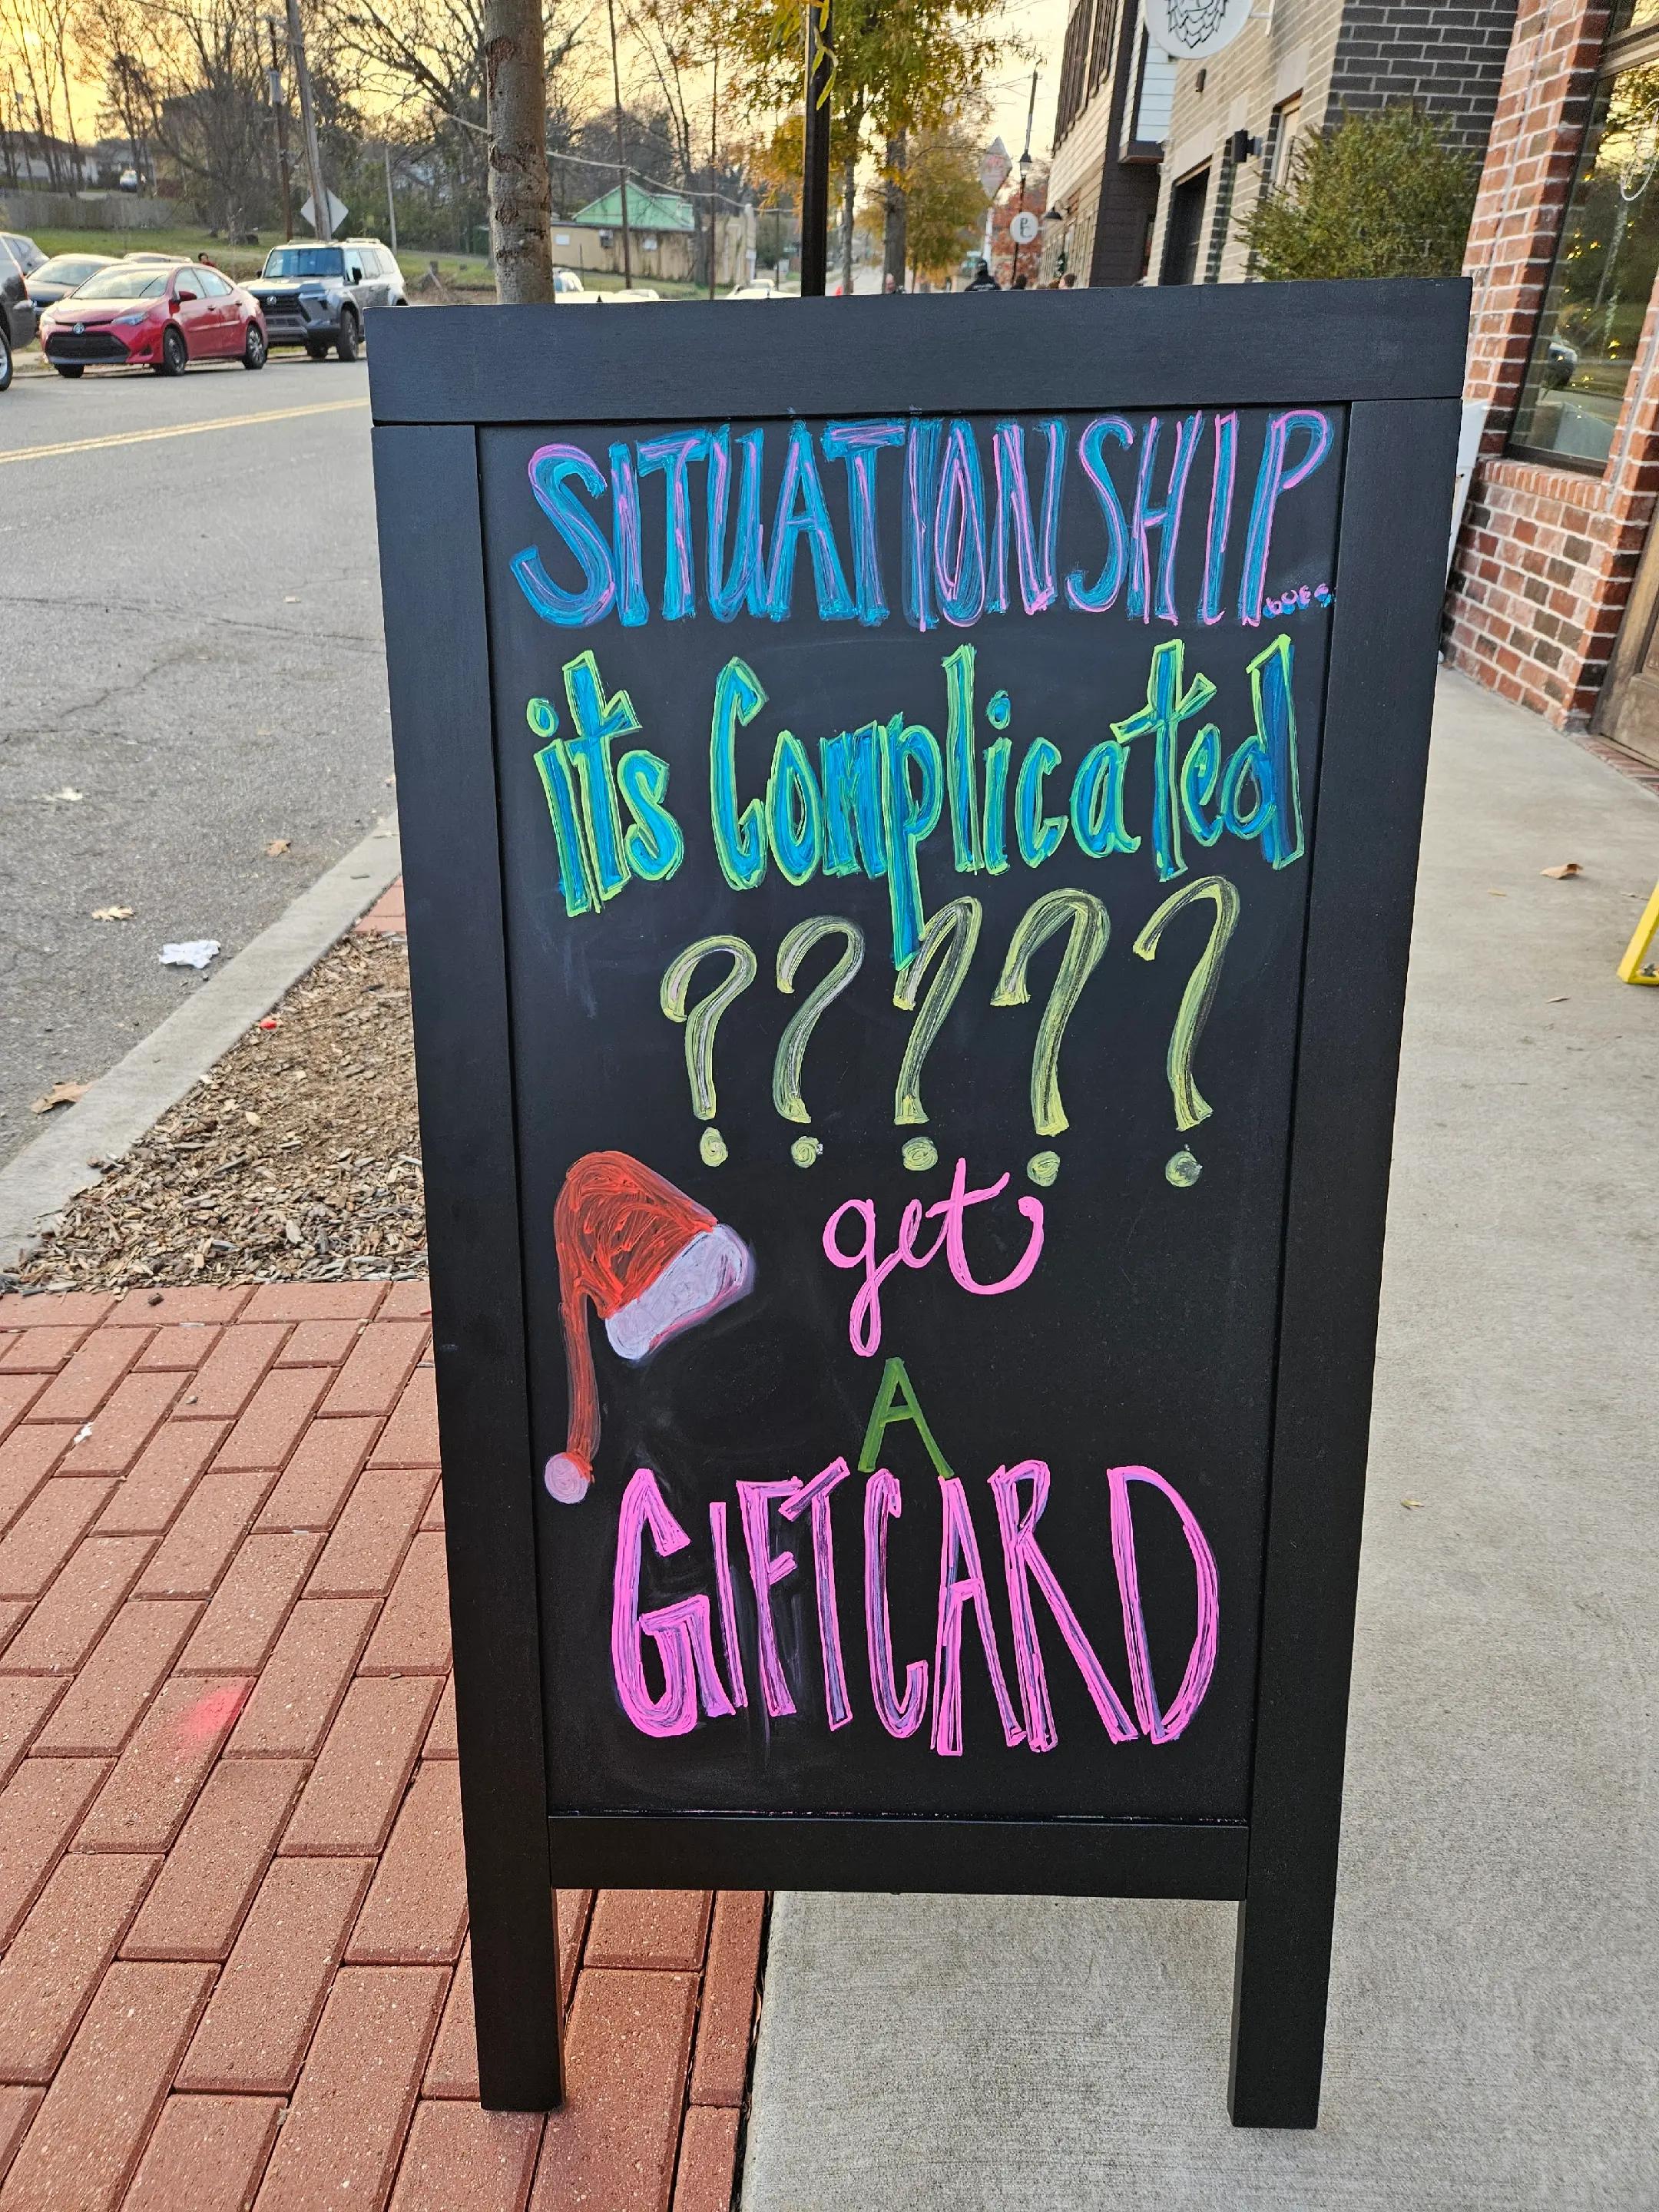 SITUATIONSHIP
its Complicated
?????
get
A
GIFTCARD